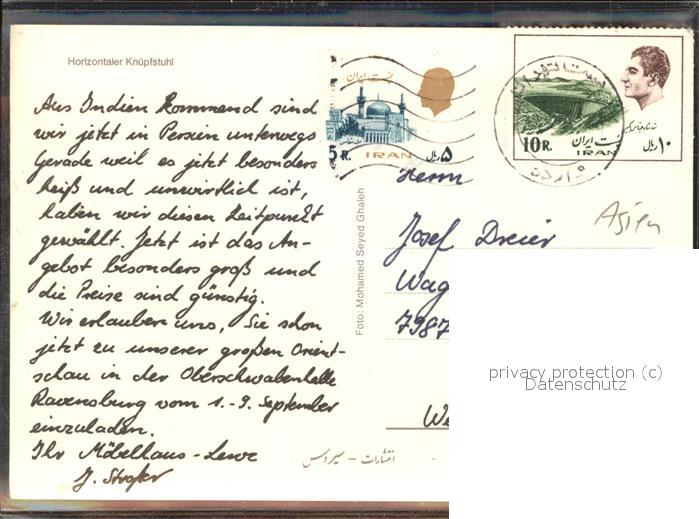 Horizontaler Knüpfstuhl
Aus Indien kommend sind
wir jetzt in Persien unterwegs
Gerade weil es jetzt besonders
heiß und unwirtlich ist,
haben wir diesen Zeitpunkt
gewählt. Jetzt ist das An-
gebot besonders groß und
die Preise sind günstig.
Wir erlauben uns, Sie schon
jetzt zu unserer großen Orient-
schau in der Oberschwabenhalle
Ravensburg vom 1.-9. September
einzuladen.
Ihr Möbelhaus-
Foto: Mohamed Seyed Ghaleh
پست ایران
5 R. IRAN ۵ ریال
پست ایران
10 R. IRAN ۱۰ ریال
Herrn
Asien
Josef Dreier
Wag
7987
We
انتشارات -
privacy protection (c)
Datenschutz